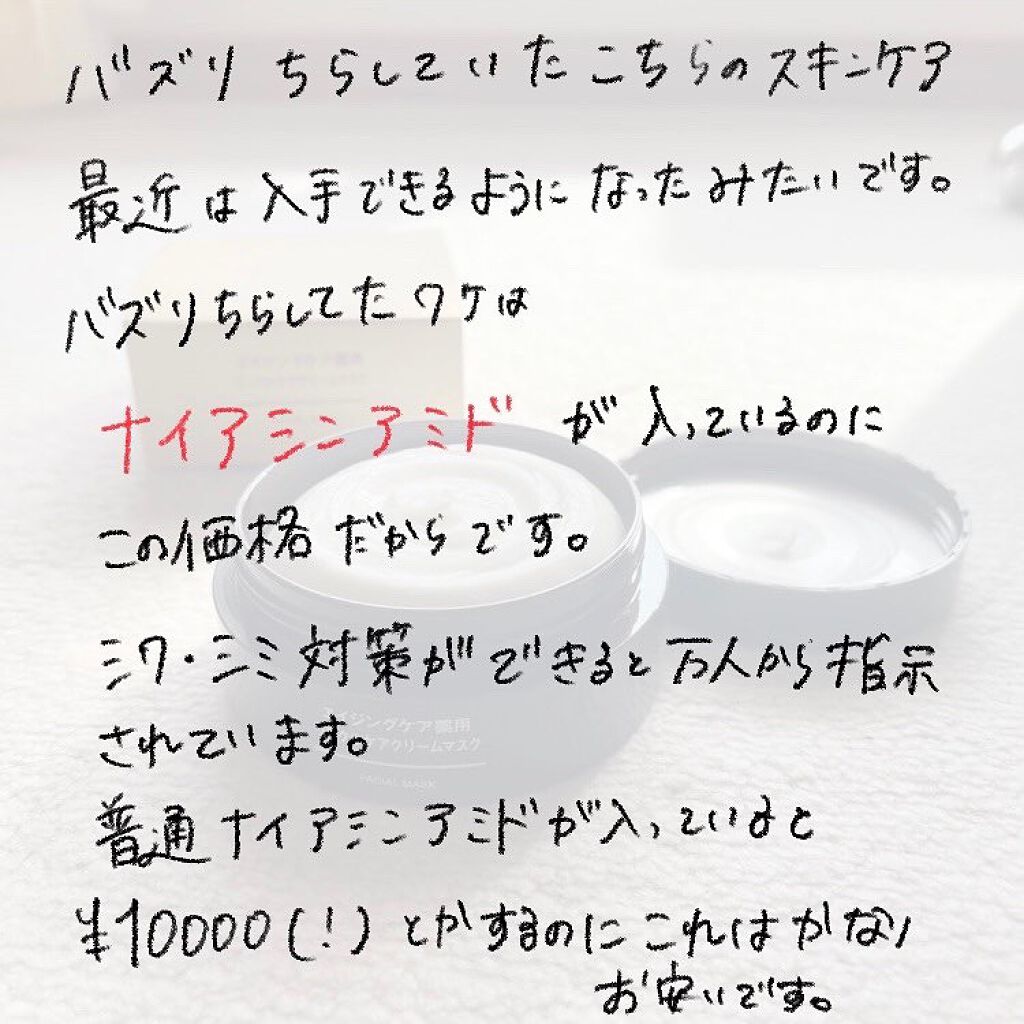 バズりちらしていたこちらのスキンケア
最近は入手できるようになったみたいです。
バズりちらしてたワケは
ナイアミンアミドが入っているのに
この価格だからです。
シワ・シミ対策ができると万人から指示
されています。
普通ナイアミンアミドが入っていると
¥10000(!)とかするのにこれはかなり
お安いです。
エイジングケア薬用
ケアクリームマスク
FACIAL MASK